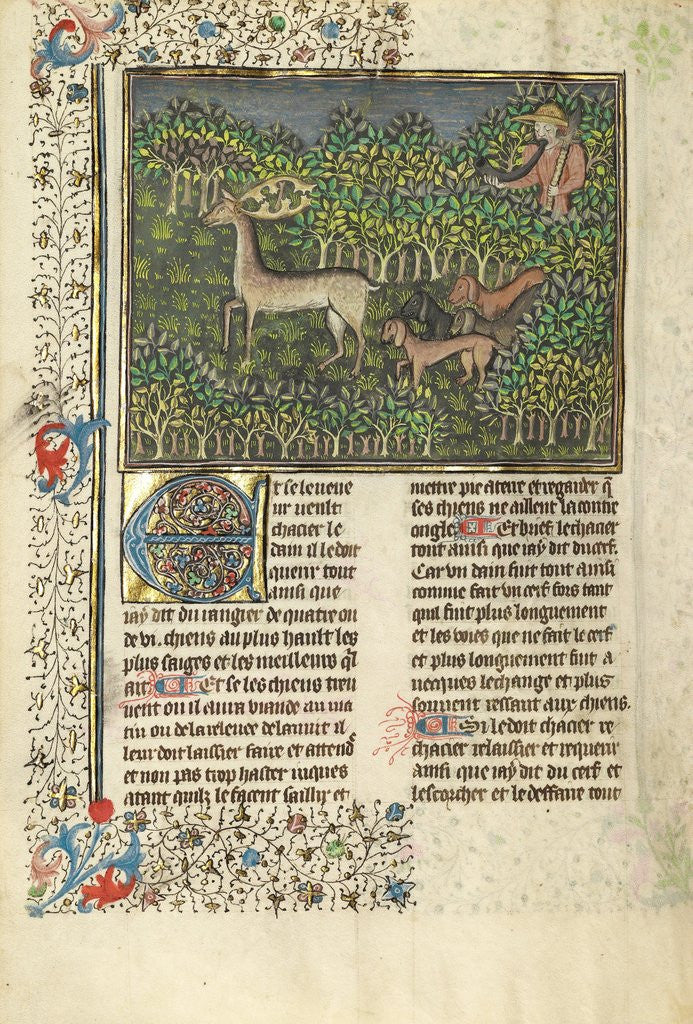 Et se le vene
ur veult
chacier le
dain il le doit
querir tout
ainsi que
iay dit du rangier de quatre ou
de vi. chiens au plus hault les
plus saiges et les meilleurs ql
ait Et se les chiens treu
uent ou il aura viande au ma
tin ou de la releuee de la nuit il
leur doit laissier faire et attendͤ
et non pas trop haster iusques
atant quilz le facent saillir et
mettre pie a terre et regarder q̄
ses chiens ne aillent la contre
ongle Et brief le chacier
tout ainsi que iay dit du cerf.
Car vn dain fuit tout ainsi
comme fait vn cerf fors tant
quil fuit plus longuement
et les voies que ne fait le cerf
et plus longuement fuit a
uecques le change et plus
souuent ressant aux chiens.
Si le doit chacier re
chacier relaissier et requerir
ainsi que iay dit du cerf et
lescorcher et le deffaire tout